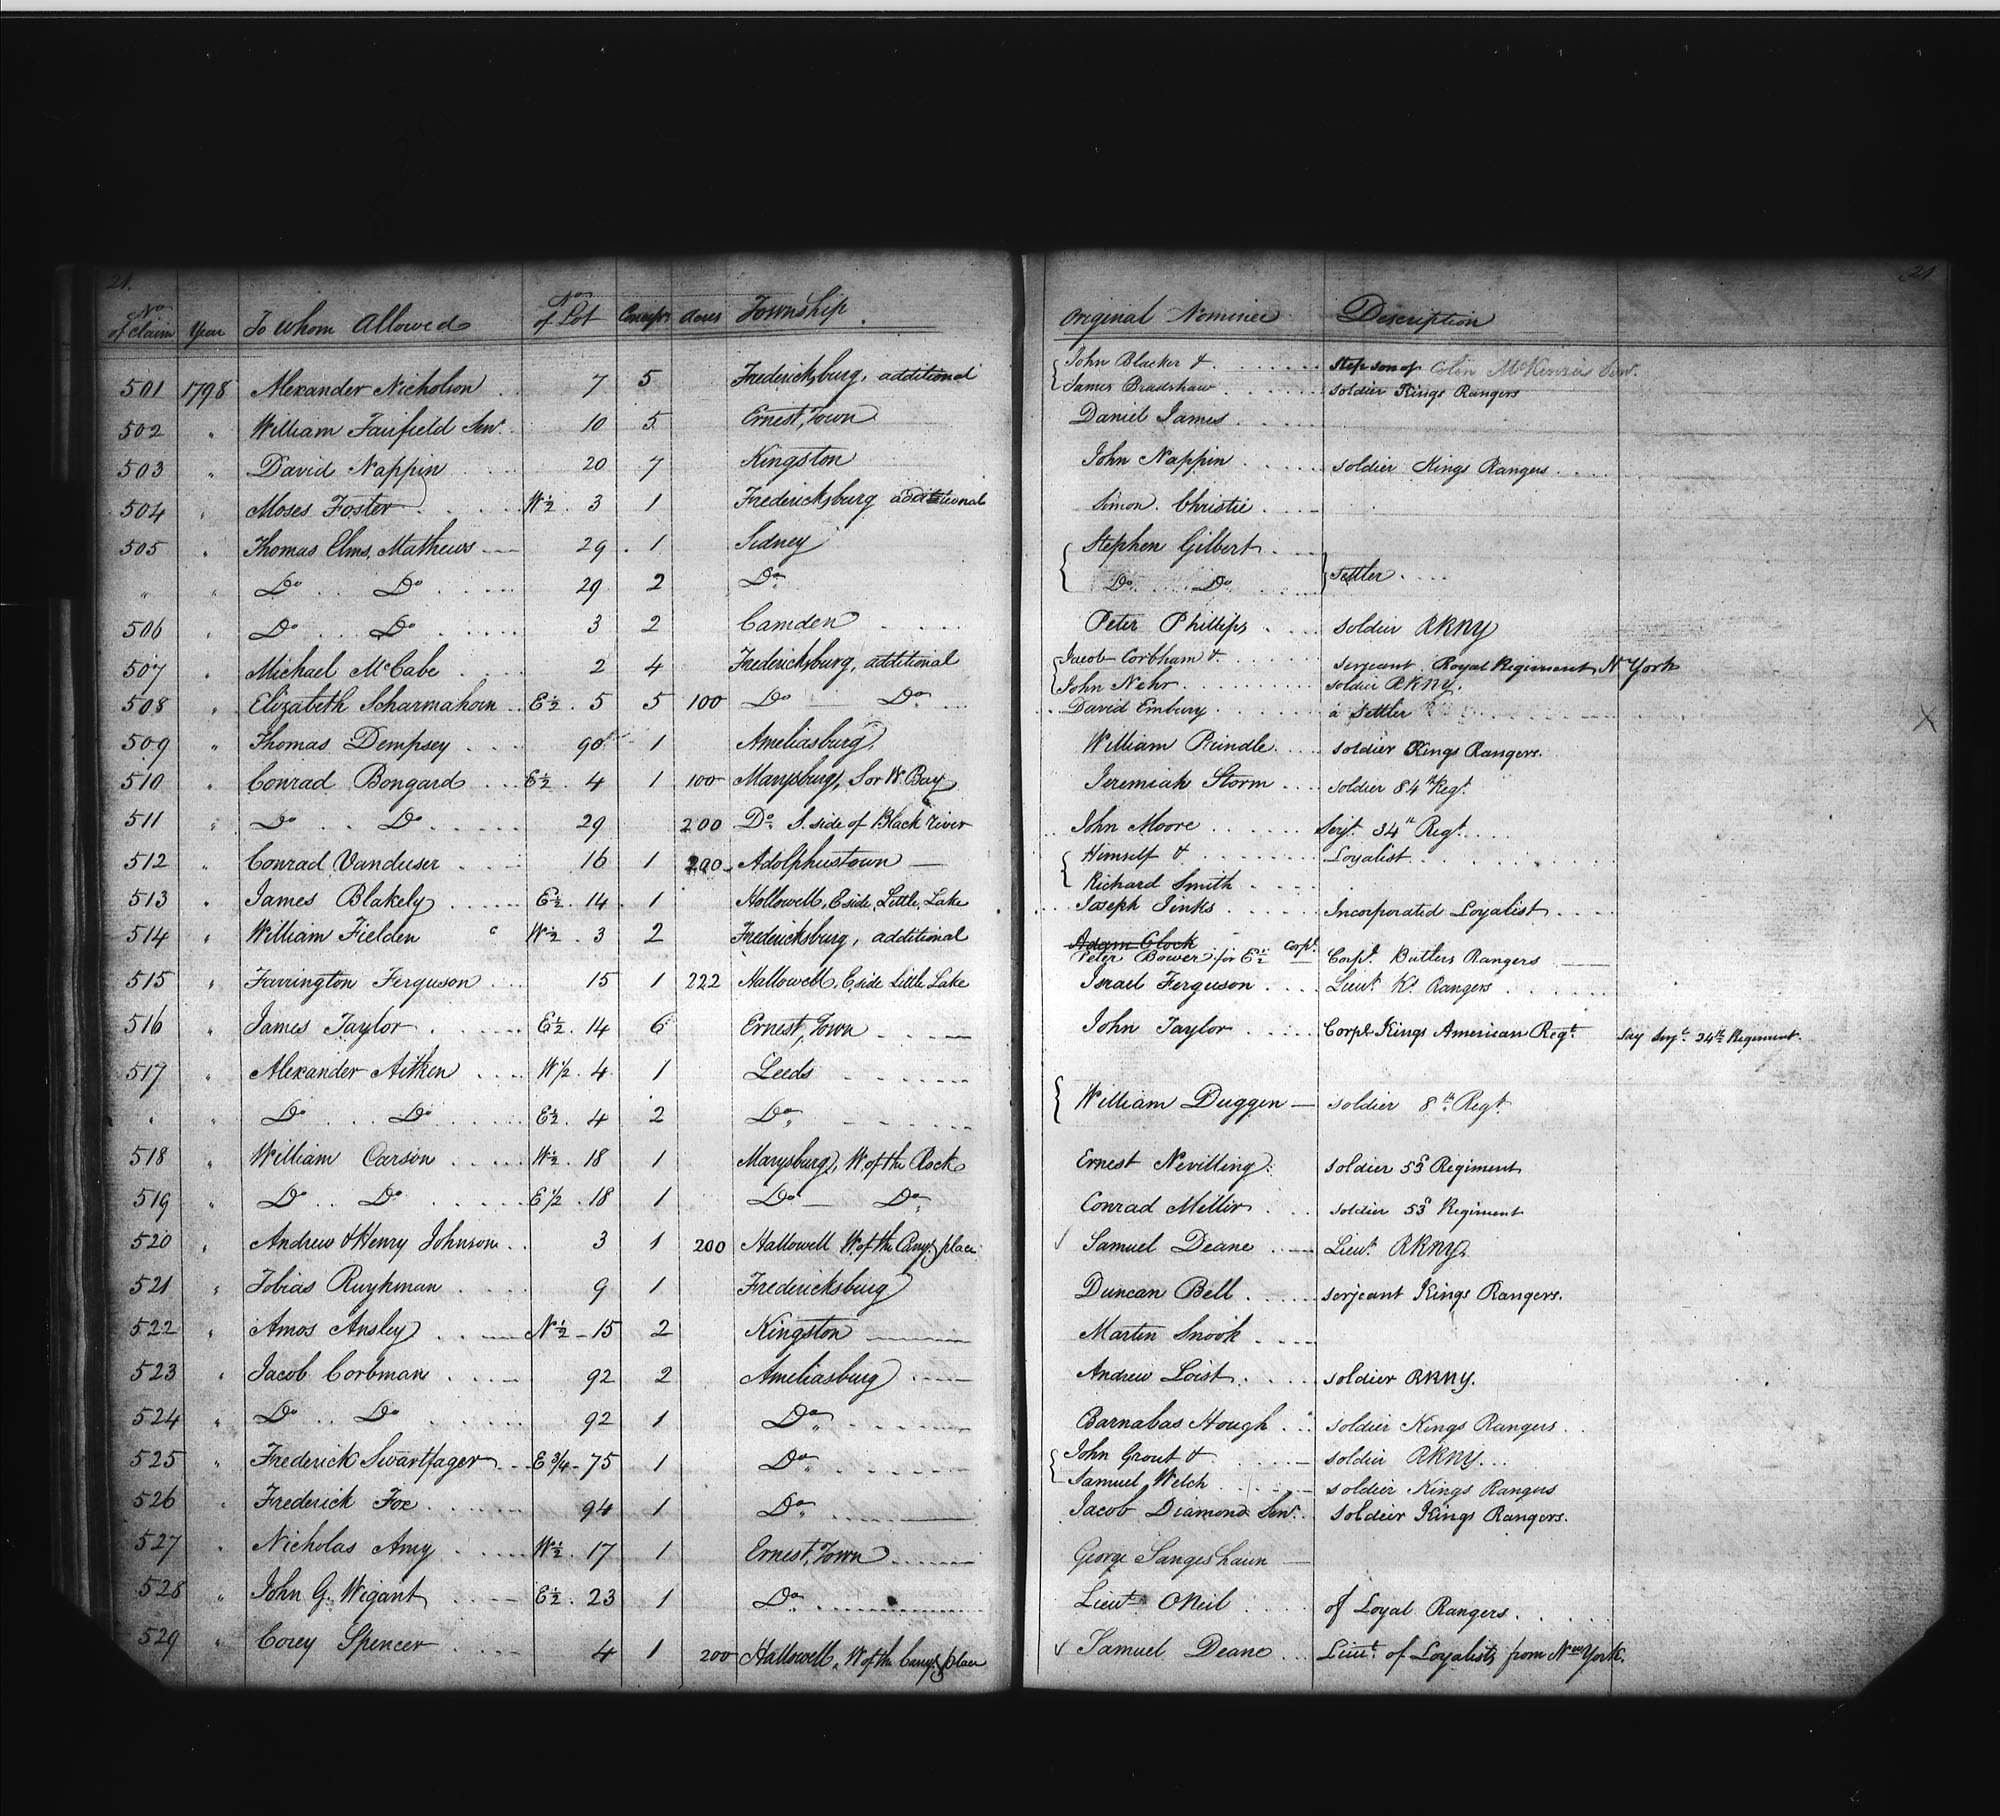 21. 21
No of Claim Year To whom Allowed No of Lot Concessn Acres Township Original Nominee Description
501 1798 Alexander Nicholson 7 5 Fredericksburg, additional John Blacker & Step son of Colin McKenzie Senr.
James Bradshaw soldier Kings Rangers
502 " William Fairfield Senr. 10 5 Ernest,Town Daniel James
503 " David Nappin 20 7 Kingston John Nappin soldier Kings Rangers
504 " Moses Foster W½ 3 1 Fredericksburg additional Simon Christie
505 " Thomas Elms, Mathews 29 1 Sidney Stephen Gilbert
" " Do Do 29 2 Do Do Do settler
506 " Do Do 3 2 Camden Peter Phillips soldier RRNY
507 " Michael McCabe 2 4 Fredericksburg, additional Jacob Corbham & serjeant Royal Regiment N York
John Nehr soldier RRNY.
508 " Elizabeth Scharmahorn E½ 5 5 100 Do Do David Embury a settler X
509 " Thomas Dempsey 90 1 Ameliasburg William Prindle soldier Kings Rangers.
510 " Conrad Bongard E½ 4 1 100 Marysburg, S or W. Bay Jeremiah Storm soldier 84th Regt.
511 " Do Do 29 200 Do S. side of Black River John Moore Serjt. 34th Regt.
512 " Conrad Vanduser 16 1 200 Adolphustown Himself & Loyalist
Richard Smith
513 " James Blakely E½ 14 1 Hollowell, E side, Little, Lake Joseph Jinks Incorporated Loyalist
514 " William Fielden W½ 3 2 Fredericksburg, additional Adam Clock Corpl.
Peter Bower for E½ Corpl. Butlers Rangers
515 " Farrington Ferguson 15 1 222 Hallowell, E side Little Lake Israel Ferguson Lieut. Ks. Rangers
516 " James Taylor E½ 14 6 Ernest, Town John Taylor Corpl. Kings American Regt. Say Serjt. 34th Regiment.
517 " Alexander Aitken W½ 4 1 Leeds
" " Do Do E½ 4 2 Do William Duggen soldier 8th Regt
518 " William Carson W½ 18 1 Marysburg, W. of the Rock Ernest Nevilling soldier 53d Regiment
519 " Do Do E½ 18 1 Do Do Conrad Miller soldier 53d Regiment
520 " Andrew & Henry Johnson 3 1 200 Hallowell W. of the Carryg place Samuel Deane Lieut. RRNY.
521 " Tobias Ruyhman 9 1 Fredericksburg Duncan Bell serjeant Kings Rangers.
522 " Amos Ansley N½ 15 2 Kingston Martin Snook
523 " Jacob Corbman 92 2 Ameliasburg Andrew Loist soldier RRNY.
524 " Do Do 92 1 Do Barnabas Hough soldier Kings Rangers
525 " Frederick Swartfager E¾ 75 1 Do John Grout & soldier RRNY
Samuel Welch soldier Kings Rangers
526 " Frederick Fox 94 1 Do Jacob Diamond Senr. soldier Kings Rangers.
527 " Nicholas Amy W½ 17 1 Ernest,Town George Sangeshaun
528 " John G. Wegant E½ 23 1 Do Lieut. ONeil of Loyal Rangers
529 " Corey Spencer 4 1 200 Hallowell, W of the Carryg place Samuel Deane Lieut. of Loyalists from New York.